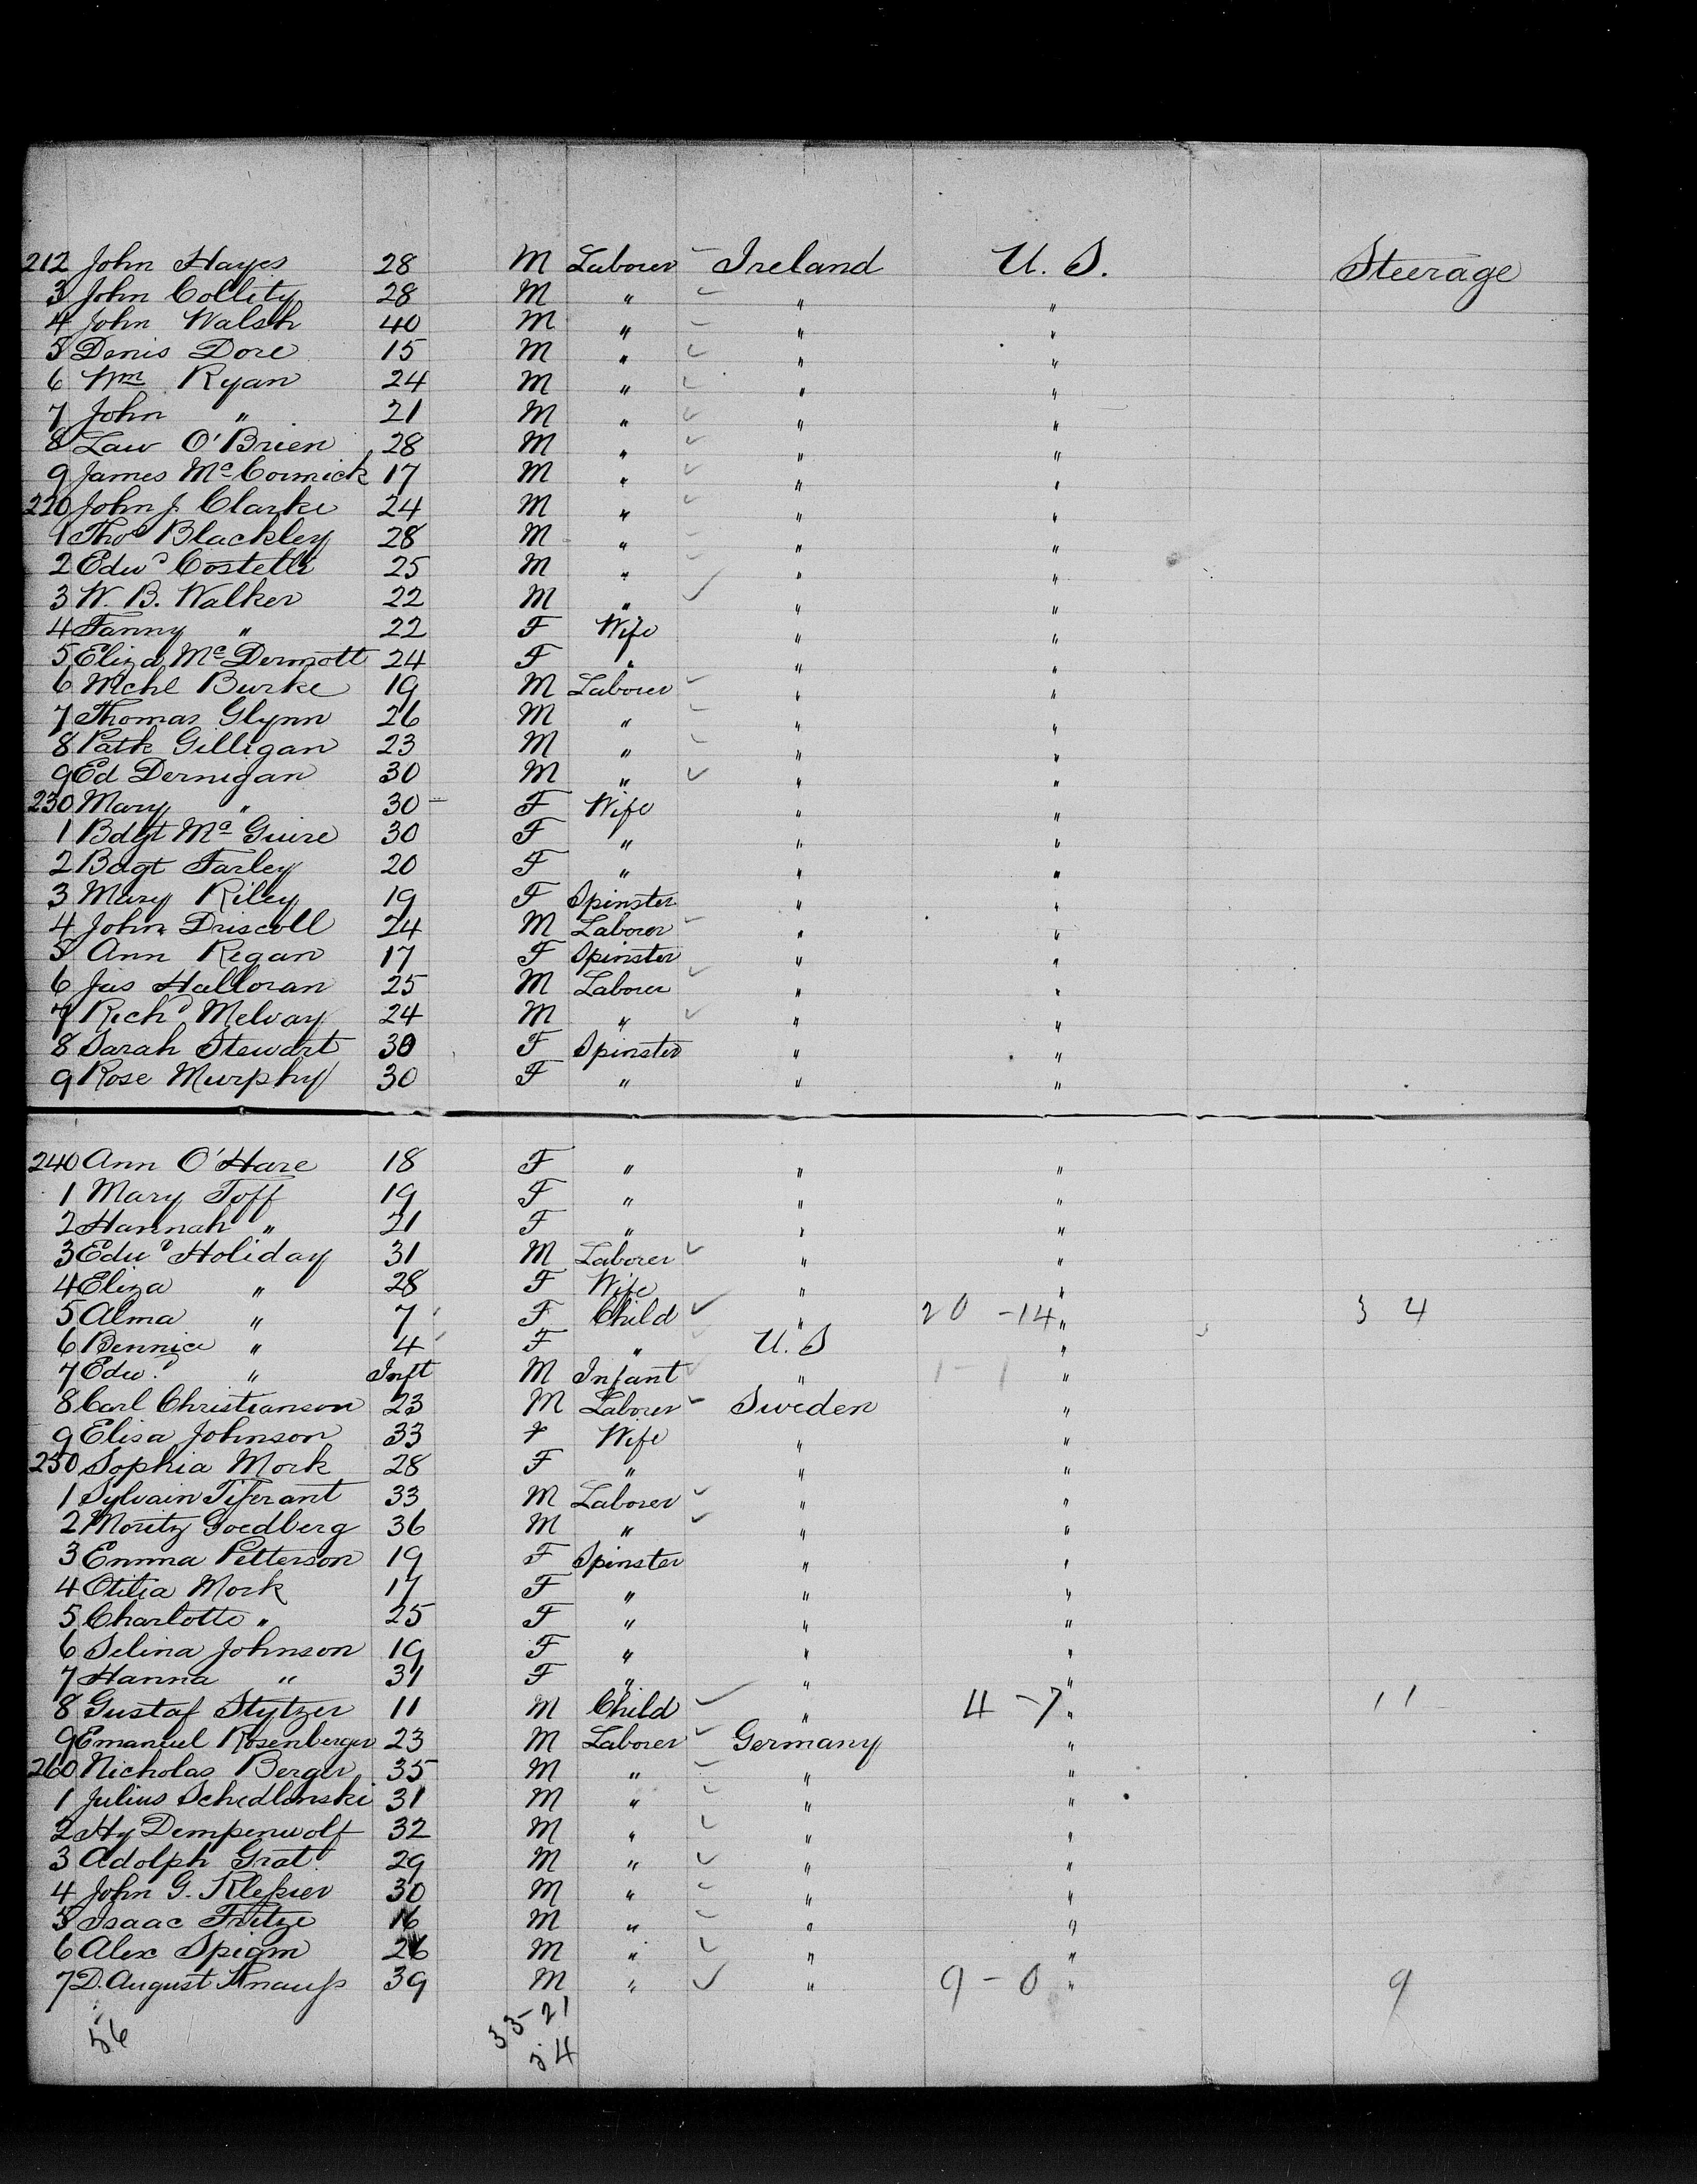 212 John Hayes 28 M Laborer Ireland U. S. Steerage
3 John Collity 28 M " " "
4 John Walsh 40 M " " "
5 Denis Dore 15 M " " "
6 Wm Ryan 24 M " " "
7 John " 21 M " " "
8 Law O'Brien 28 M " " "
9 James McCormick 17 M " " "
220 John J. Clarke 24 M " " "
1 Thos Blackley 28 M " " "
2 Edwd Costello 25 M " " "
3 W. B. Walker 22 M " " "
4 Fanny " 22 F Wife " "
5 Eliza McDermott 24 F " " "
6 Michl Burke 19 M Laborer " "
7 Thomas Glynn 26 M " " "
8 Patk Gilligan 23 M " " "
9 Ed Dernigan 30 M " " "
230 Mary " 30 F Wife " "
1 Bdgt McGuire 30 F " " "
2 Bdgt Farley 20 F " " "
3 Mary Riley 19 F Spinster " "
4 John Driscoll 24 M Laborer " "
5 Ann Regan 17 F Spinster " "
6 Jas Halloran 25 M Laborer " "
7 Richd Melvay 24 M " " "
8 Sarah Stewart 30 F Spinster " "
9 Rose Murphy 30 F " " "
240 Ann O'Hare 18 F " " "
1 Mary Toff 19 F " " "
2 Hannah " 21 F " " "
3 Edwd Holiday 31 M Laborer " "
4 Eliza " 28 F Wife " "
5 Alma " 7 F Child " 20 - 14 " 3 4
6 Bennice " 4 F " U. S "
7 Edwd " Inft M Infant " 1 - 1 "
8 Carl Christianson 23 M Laborer Sweden "
9 Elisa Johnson 33 F Wife " "
250 Sophia Mork 28 F " " "
1 Sylvain Tiferant 33 M Laborer " "
2 Moritz Goedberg 36 M " " "
3 Emma Petterson 19 F Spinster " "
4 Otilia Mork 17 F " " "
5 Charlotte " 25 F " " "
6 Selina Johnson 19 F " " "
7 Hanna " 31 F " " "
8 Gustaf Stytzer 11 M Child " 4 - 7 " 11
9 Emanuel Rosenberger 23 M Laborer Germany "
260 Nicholas Berger 35 M " " "
1 Julius Schedlanski 31 M " " "
2 Hy Dempenwolf 32 M " " "
3 Adolph Grat 29 M " " "
4 John G. 30 M " " "
5 Isaac Fritze 16 M " " "
6 Alex Spigm 26 M " " "
7 D. August Knauss 39 M " " 9 - 0 " 9
56 33 - 21
54